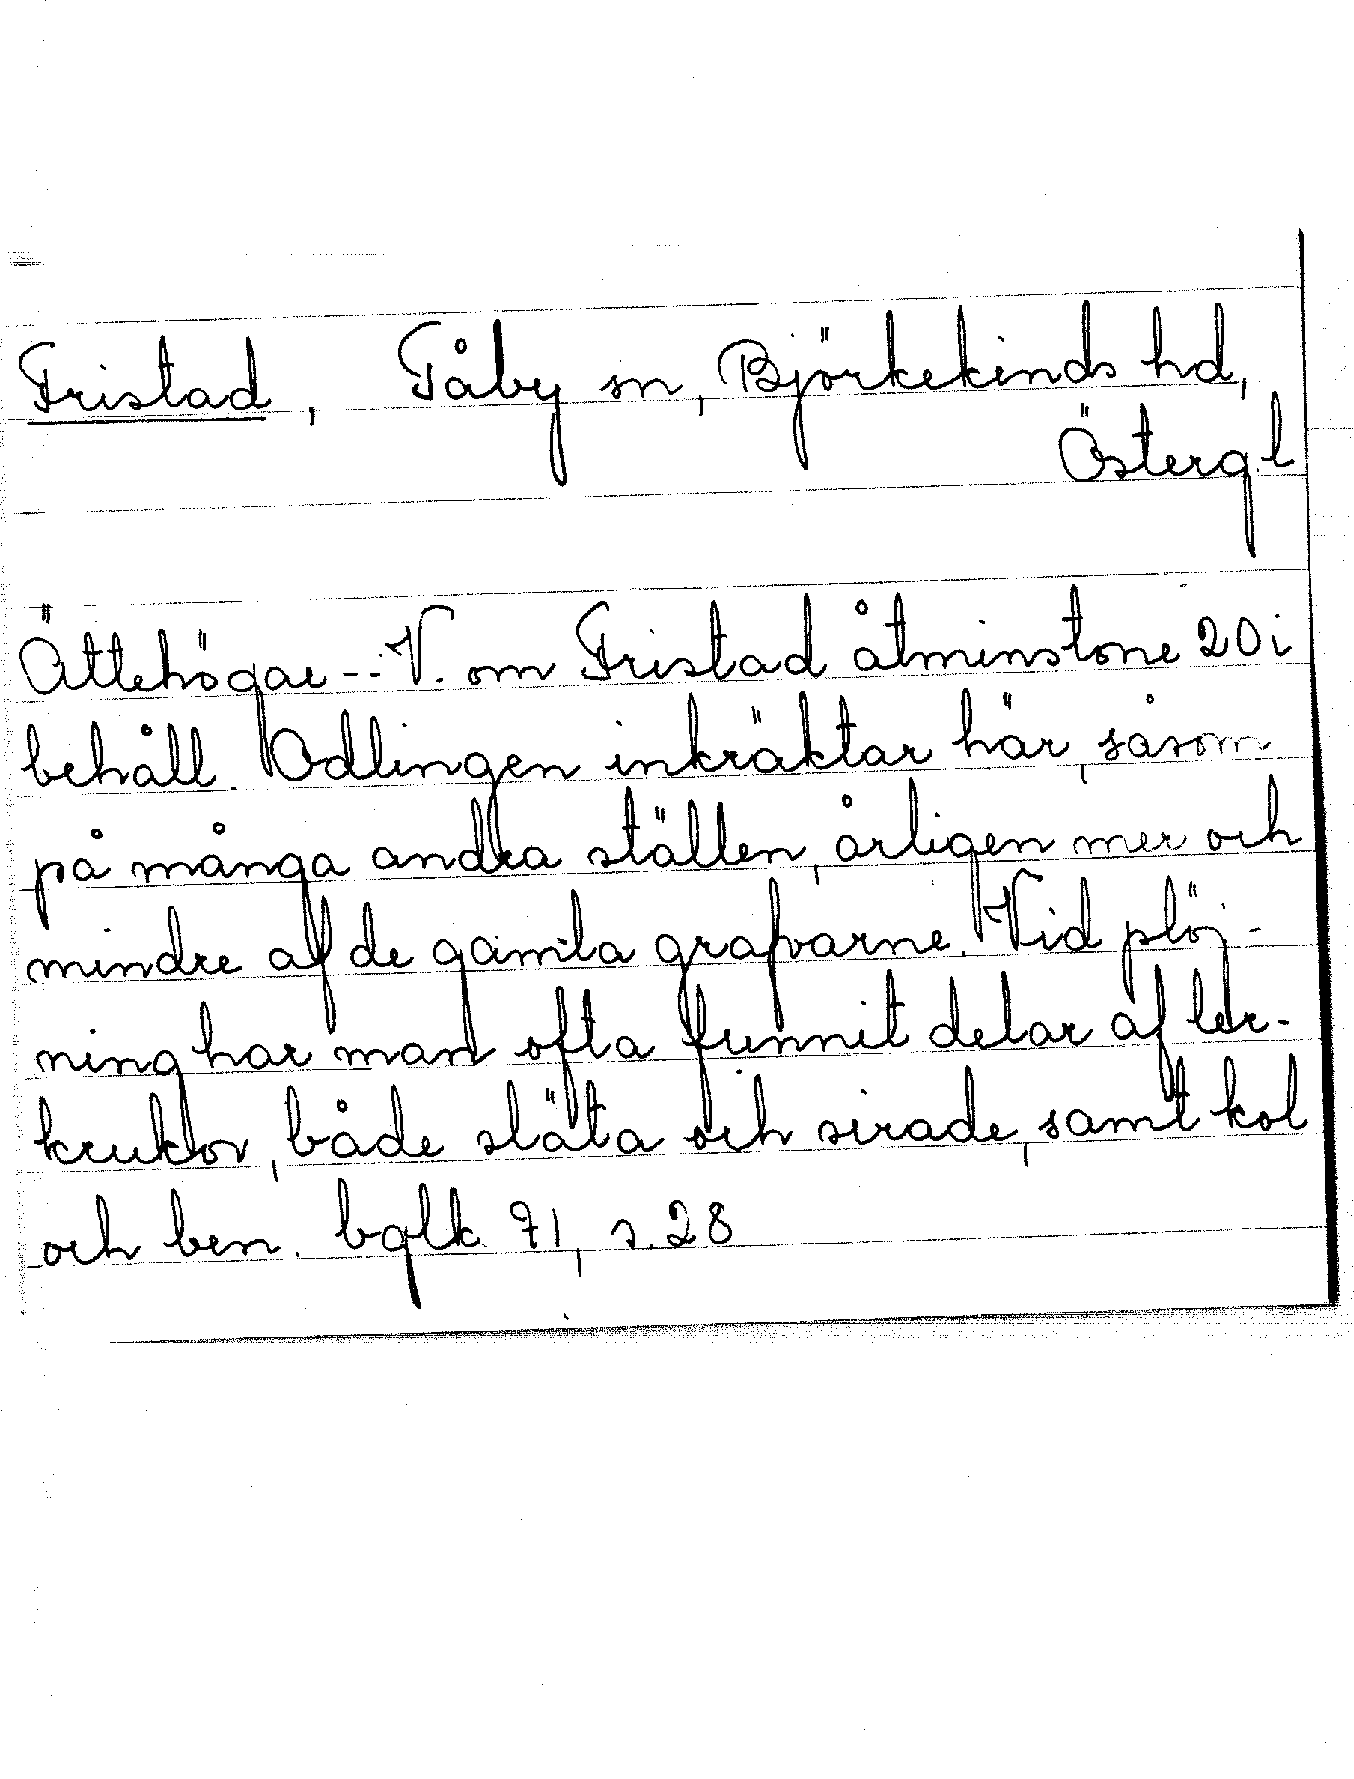 Fristad, Tåby sn, Björkekinds hd,
Östergl
Ättehögar -.. V. om Fristad åtminstone 20 i
behåll. Odlingen inkräktar här, såsom
på många andra ställen, årligen mer och
mindre af de gamla grafvarne. Vid plöj-
ning har man ofta funnit delar af ler-
krukor, både släta och sirade, samt kol
och ben. bglk. 71, s. 28